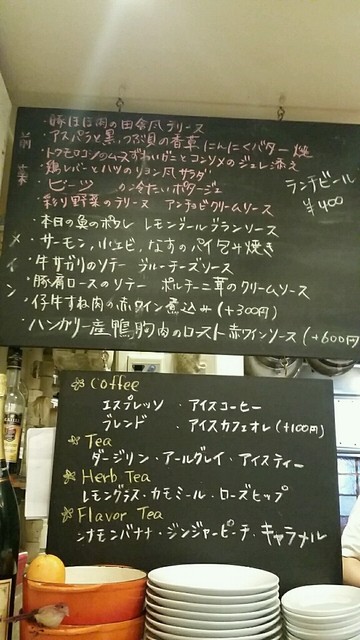 前菜
・豚ほほ肉の田舎風テリーヌ
・アスパラと黒つぶ貝の香草にんにくバター焼
・トウモロコシのムース ずわいガニとコンソメのジュレ添え
・鶏レバーとハツのリヨン風サラダ
・ビーツの冷たいポタージュ
・彩り野菜のテリーヌ アンチョビクリームソース
ランチビール
¥400
メイン
・本日の魚のポワレ レモンブールブランソース
・サーモン、小エビ、なすのパイ包み焼き
・牛サガリのソテー ブルーチーズソース
・豚肩ロースのソテー ポルチーニ茸のクリームソース
・仔牛すね肉の赤ワイン煮込み (+300円)
・ハンガリー産鴨胸肉のロースト 赤ワインソース (+600円
Coffee
エスプレッソ ・アイスコーヒー
ブレンド ・アイスカフェオレ (+100円)
Tea
ダージリン・アールグレイ・アイスティー
Herb Tea
レモングラス・カモミール・ローズヒップ
Flavor Tea
シナモンバナナ・ジンジャーピーチ・キャラメル